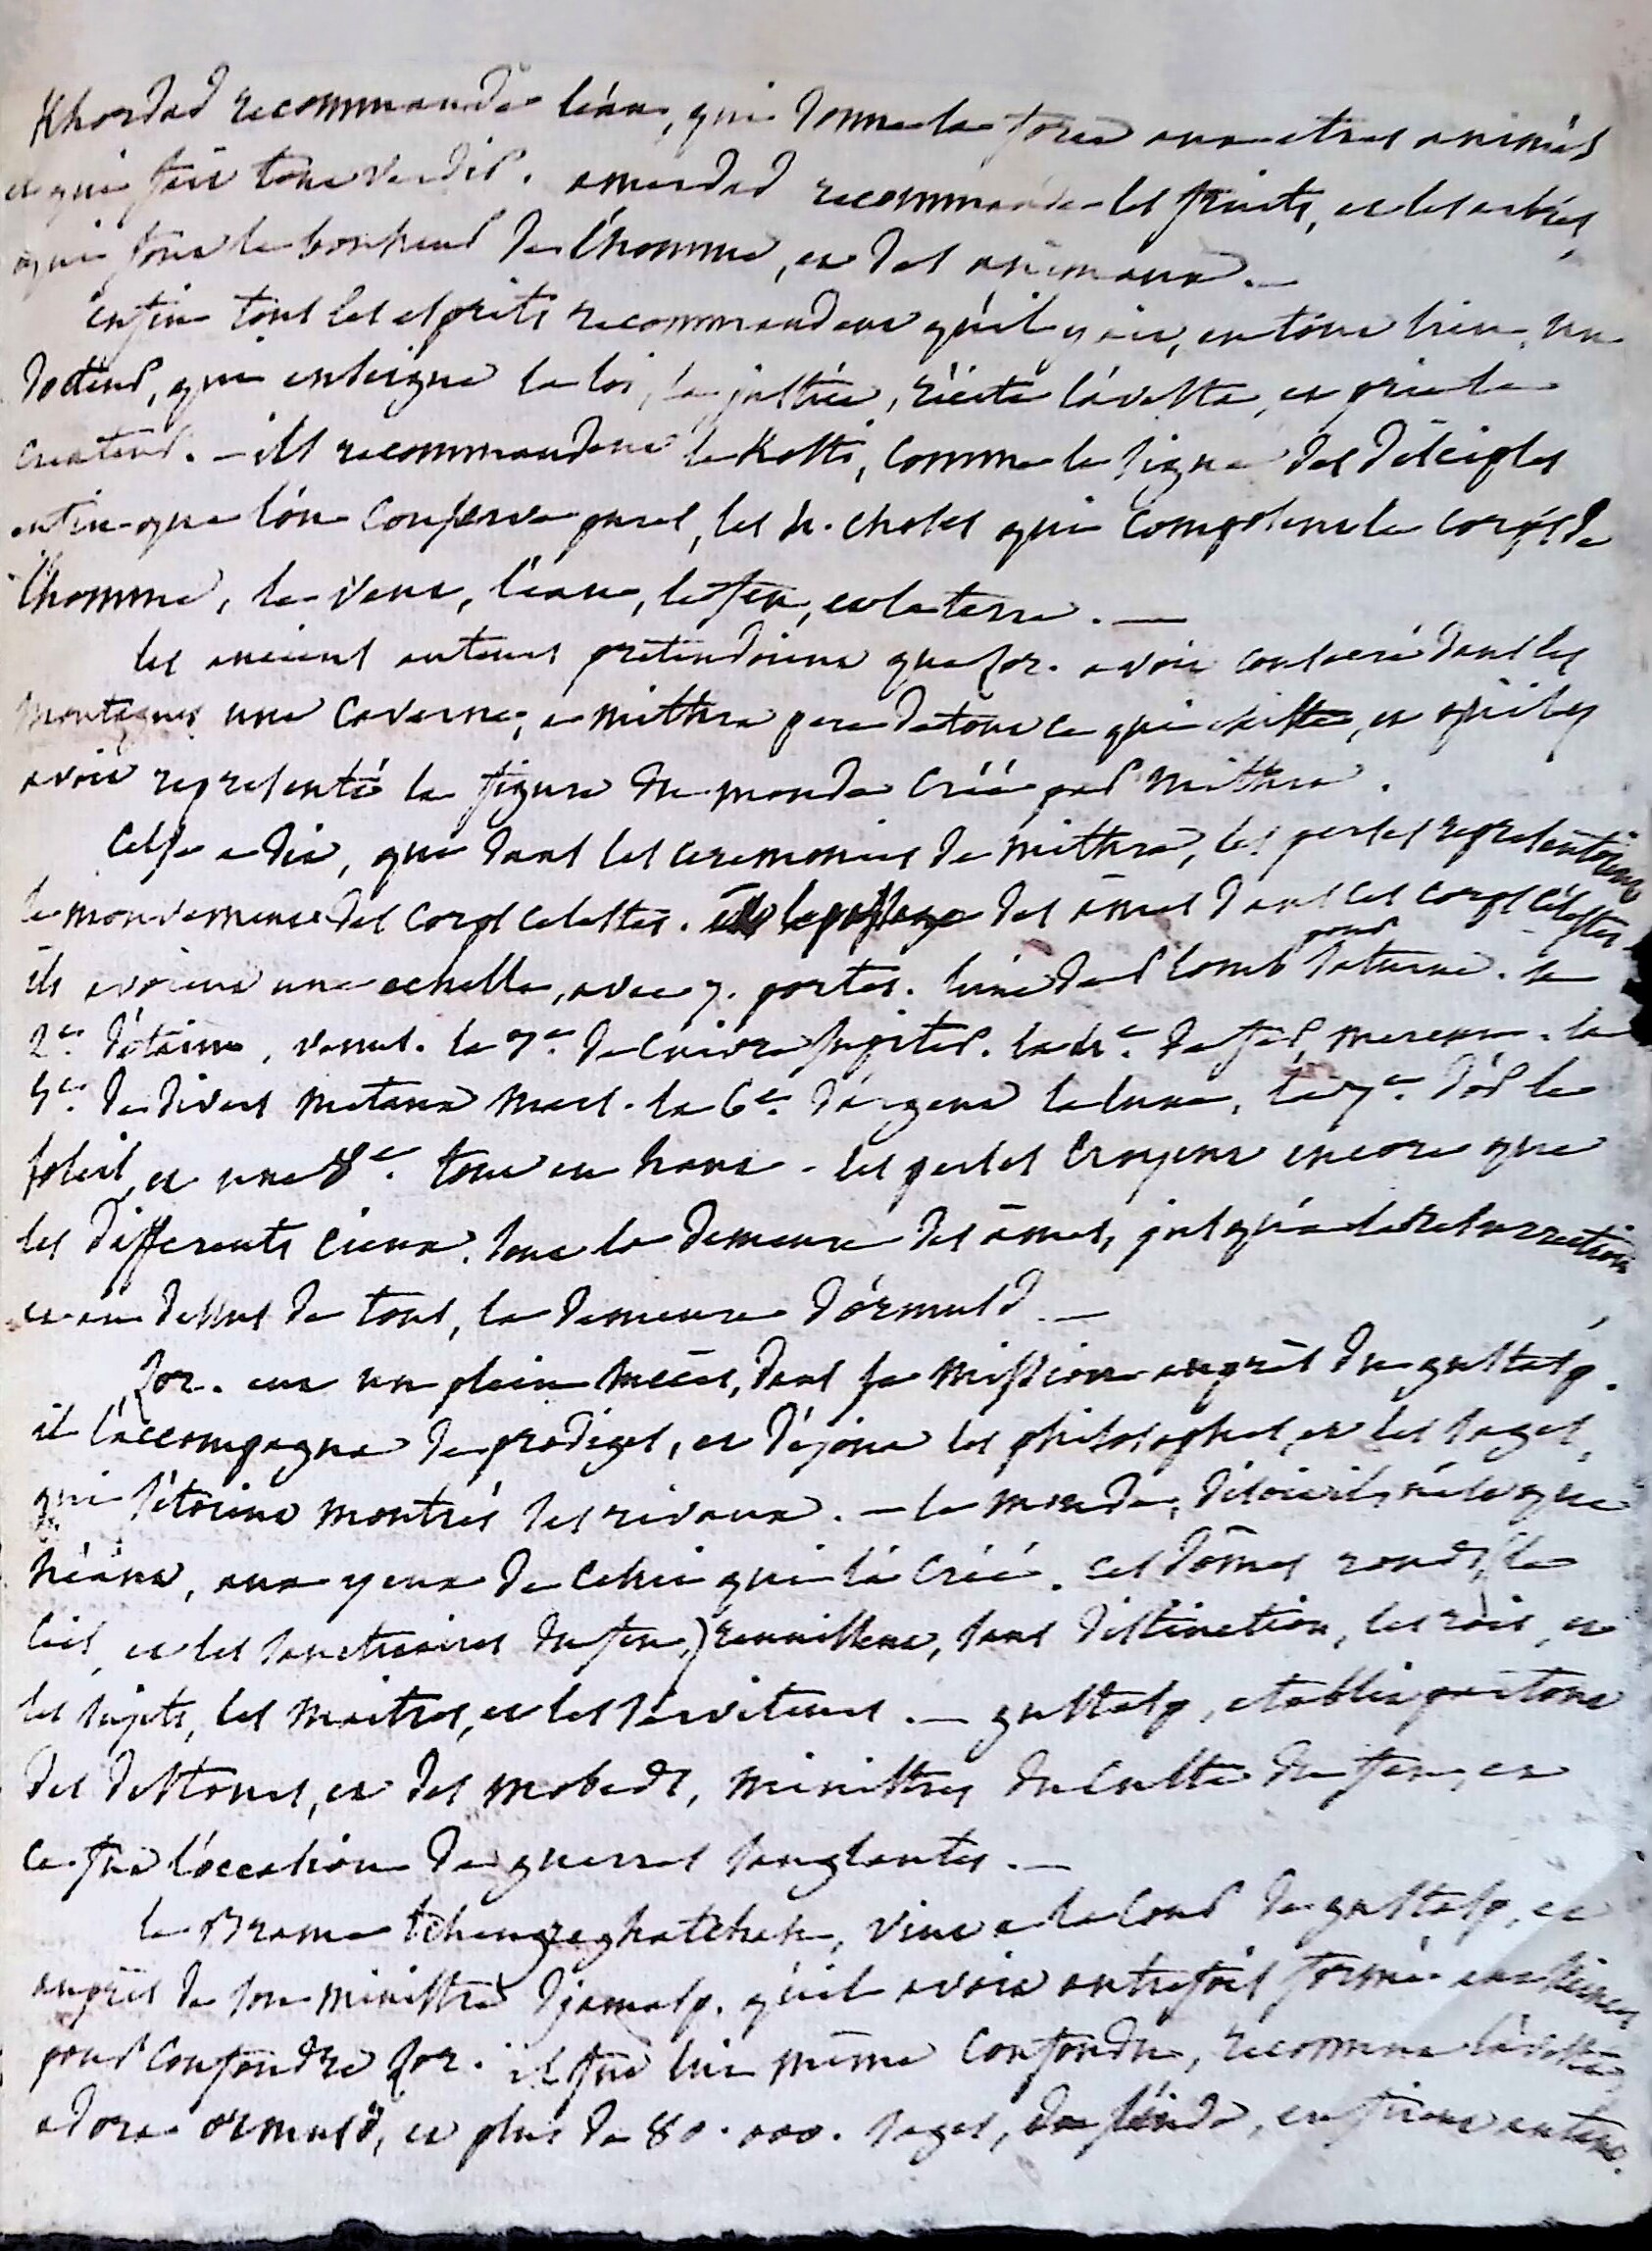 Khordad recommande l'eau, qui donne la force aux etres animés
et qui fait tout verdir. amerdad recommande les fruits, et les arbres,
qui font le bonheur de l'homme, et des animaux. —
enfin tous les esprits recommandent qu'il y ait, en tout lieu, un
docteur, qui enseigne la loi, la justice, récite l'avesta, et prie le
createur. — ils recommandent le Kosti, comme le signe des disciples
enfin que l'on conserve pures, les 4. choses qui composent le corps de
l'homme, le vent, l'eau, le feu, et la terre. —
les anciens auteurs prétendoient que Zor. avoit consacré dans les
montagnes une caverne, a mithra pere de tout ce qui existe, et qu'il y
avoit representé la figure du monde créé par mithra.
Celse a dit, que dans les ceremonies de mithra, les perses representoient
le mouvement des corps celestes. et le passage des âmes dans ces corps célestes
ils avoient une echelle, avec 7. portes. l'une de plomb pour saturne. la
2e. d'étaim, venus. la 3e. de cuivre jupiter. la 4e. de fer, mercure. la
5e. de divers metaux mars. la 6e. d'argent la lune, la 7e. d'or le
soleil, et une 8e. tout en haut - les perses croyent encore que
les differents cieux, sont la demeure des âmes, jusqu'a la resurrection
et au dessus de tous, la demeure d'ormusd. —
Zor. eut un plein succès, dans sa mission auprès de gustasp.
il l'accompagna de prodiges, et déjoua les philosophes, et les sages,
qui s'étoient montrés ses rivaux. — le monde, disoit il, n'est que
néant, aux yeux de celui qui l'a créé. ces dômes ronds, (le
ciel, et les sanctuaires du feu,) reunissent, sans distinction, les rois, et
les sujets, les maitres, et les serviteurs. — gustasp, etablit partout
des destours, et des mobeds, ministres du culte du feu, et
ce fut l'occasion de guerres sanglantes. —
le Brame tchengreghatchah, vint a la cour de gustasp, et
auprès de son ministre Djamasp. qu'il avoit autrefois formé aux sciences
pour confondre Zor. il fut lui même confondu, reconnut l'avesta
adora ormusd, et plus de 80.000. sages, de l'inde, en firent autant.